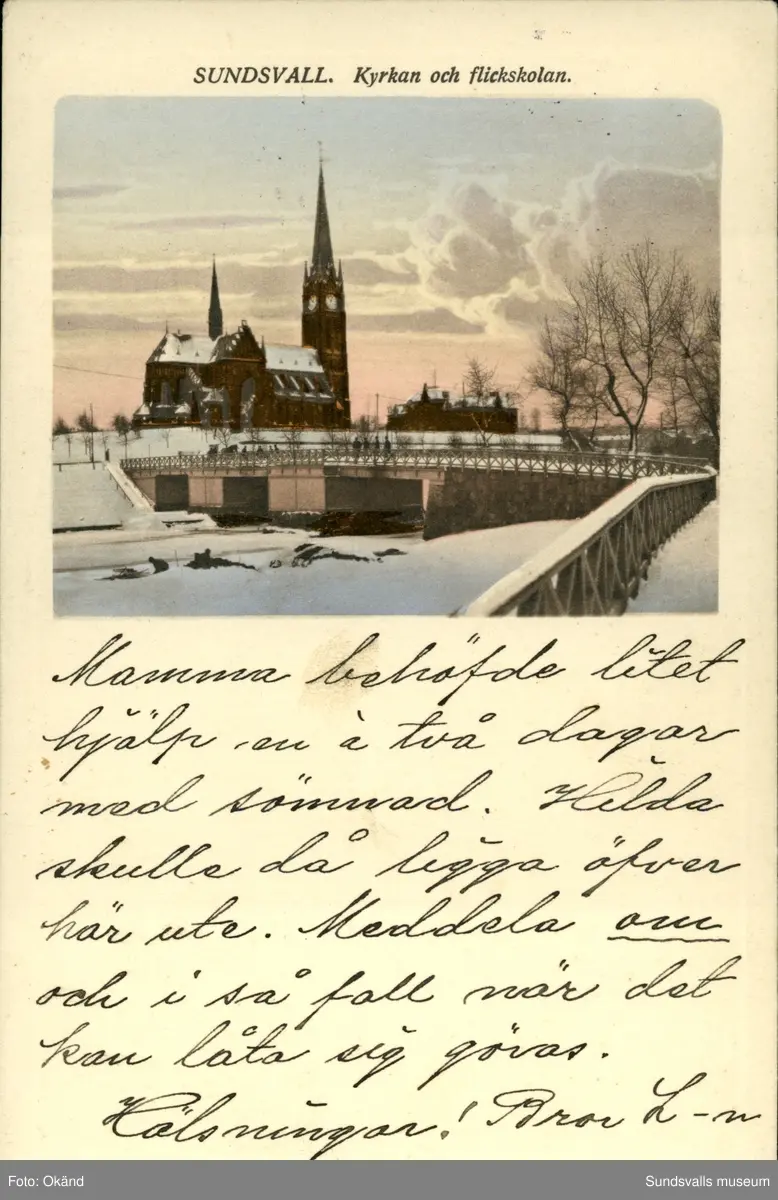 SUNDSVALL. Kyrkan och flickskolan.
Mamma behöfde litet
hjälp en à två dagar
med sömnad. Hilda
skulle då ligga öfver
här ute. Meddela om
och i så fall när det
kan låta sig göras.
Hälsningar! Bror L-n
Foto: Okänd
Sundsvalls museum